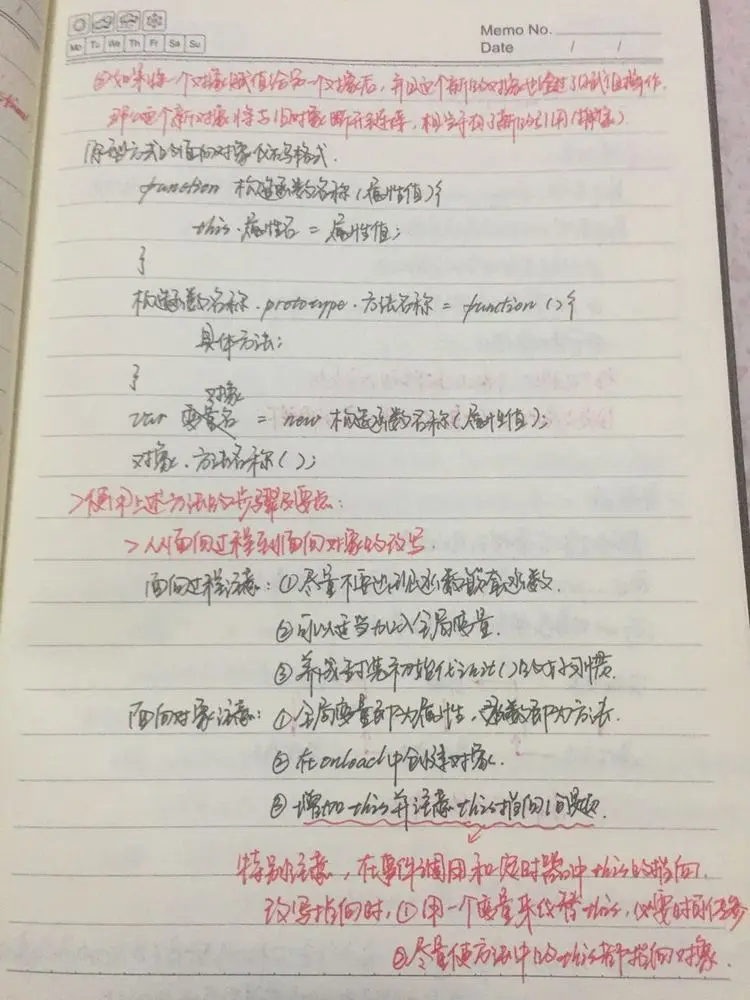 Memo No.
Mo Tu We Th Fr Sa Su
Date / /
②如果将一个对象赋值给另一个对象后,并且这个新的对象也经过了赋值操作,
那么这个新对象将与旧对象断开连接,相当于有了新的引用(拷贝)
原型方式的面向对象仪写格式.
function 构造函数名称(属性值){
this.属性名 = 属性值;
}
构造函数名称.prototype.方法名称 = function(){
具体方法;
}
对象
var 变量名 = new 构造函数名称(属性值);
对象.方法名称();
>使用上述方法的步骤及要点:
>从面向过程到面向对象的改写.
面向过程注意:①尽量不要出现函数嵌套函数.
②可以适当加入全局变量.
③养成封装初始化init()的好习惯.
面向对象注意:①全局变量即为属性,函数即为方法.
②在onload中创建对象.
③增加this并注意this指向问题.
特别注意,在事件调用和定时器中this的指向.
改写指向时,①用一个变量来代替this,必要时可传参
②尽量使方法中的this都指向对象.